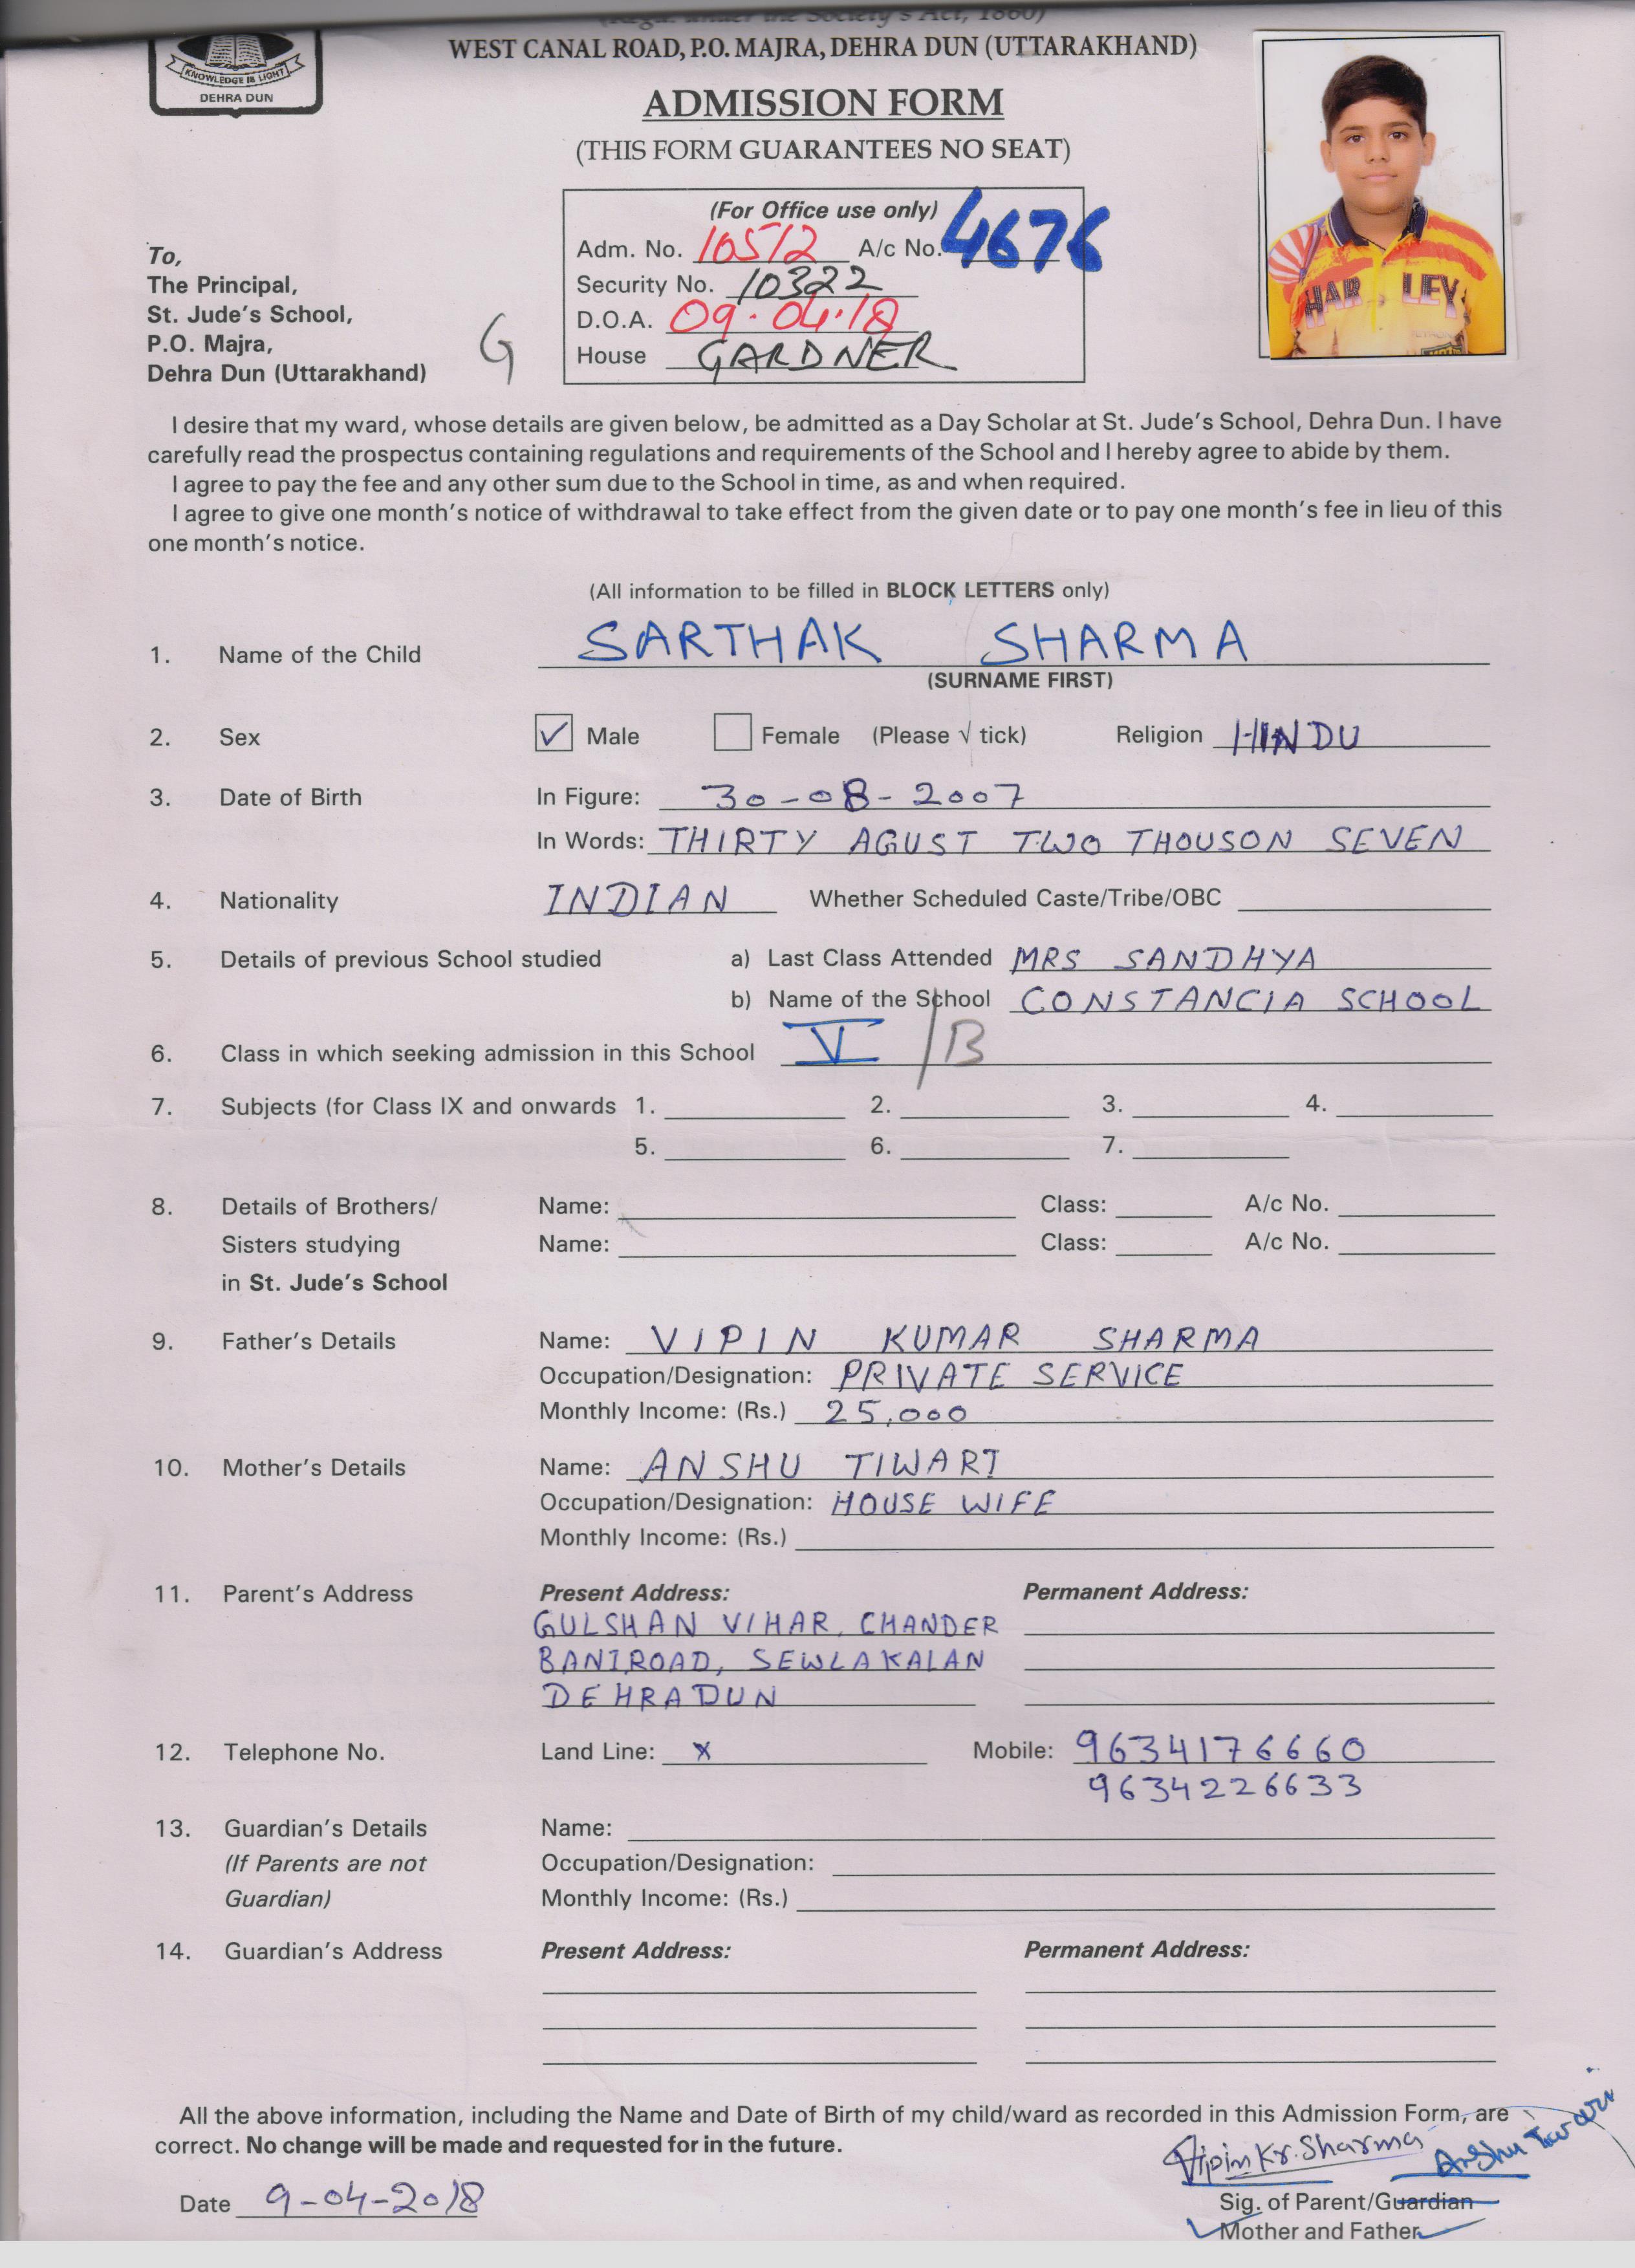 (Regd. under the Society's Act, 1860)
WEST CANAL ROAD, P.O. MAJRA, DEHRA DUN (UTTARAKHAND)
KNOWLEDGE IS LIGHT
DEHRA DUN
ADMISSION FORM
(THIS FORM GUARANTEES NO SEAT)
(For Office use only)
Adm. No. 10512 A/c No. 4676
Security No. 10322
D.O.A. 09.04.18
House GARDNER
To,
The Principal,
St. Jude's School,
P.O. Majra,
Dehra Dun (Uttarakhand)
G
HAR LEY
I desire that my ward, whose details are given below, be admitted as a Day Scholar at St. Jude's School, Dehra Dun. I have
carefully read the prospectus containing regulations and requirements of the School and I hereby agree to abide by them.
I agree to pay the fee and any other sum due to the School in time, as and when required.
I agree to give one month's notice of withdrawal to take effect from the given date or to pay one month's fee in lieu of this
one month's notice.
(All information to be filled in BLOCK LETTERS only)
1. Name of the Child SARTHAK SHARMA
(SURNAME FIRST)
2. Sex ✓ Male Female (Please √ tick) Religion HINDU
3. Date of Birth In Figure: 30-08-2007
In Words: THIRTY AGUST TWO THOUSON SEVEN
4. Nationality INDIAN Whether Scheduled Caste/Tribe/OBC
5. Details of previous School studied a) Last Class Attended MRS SANDHYA
b) Name of the School CONSTANCIA SCHOOL
6. Class in which seeking admission in this School V /B
7. Subjects (for Class IX and onwards 1. 2. 3. 4.
5. 6. 7.
8. Details of Brothers/ Name: Class: A/c No.
Sisters studying Name: Class: A/c No.
in St. Jude's School
9. Father's Details Name: VIPIN KUMAR SHARMA
Occupation/Designation: PRIVATE SERVICE
Monthly Income: (Rs.) 25,000
10. Mother's Details Name: ANSHU TIWARI
Occupation/Designation: HOUSE WIFE
Monthly Income: (Rs.)
11. Parent's Address Present Address: Permanent Address:
GULSHAN VIHAR, CHANDER
BANIROAD, SEWLAKALAN
DEHRADUN
12. Telephone No. Land Line: x Mobile: 9634176660
9634226633
13. Guardian's Details Name:
(If Parents are not Occupation/Designation:
Guardian) Monthly Income: (Rs.)
14. Guardian's Address Present Address: Permanent Address:
All the above information, including the Name and Date of Birth of my child/ward as recorded in this Admission Form, are
correct. No change will be made and requested for in the future.
Vipin Kr. Sharma Anshu Tiwari
Date 9-04-2018
Sig. of Parent/Guardian
Mother and Father